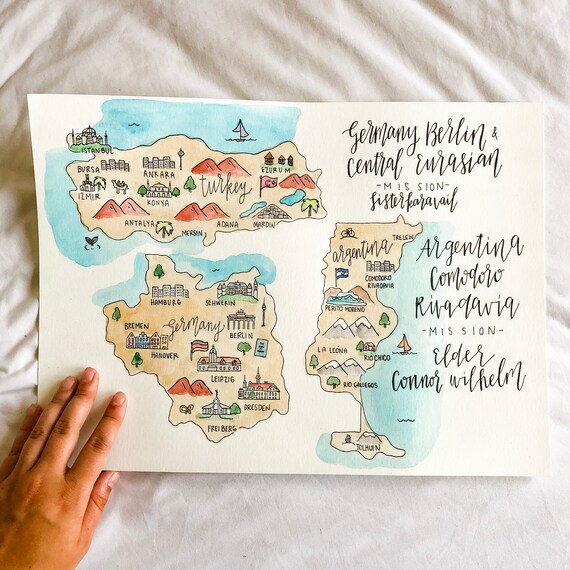 Germany Berlin &
Central Eurasian
-MISSION-
Sister Karavail
ISTANBUL
BURSA
ANKARA
EZURUM
turkey
IZMIR
KONYA
ANTALYA
ADANA
MARDIN
MERSIN
argentina
TRELEW
COMODORO
RIVADAVIA
PERITO MORENO
LA LEONA
RIO CHICO
RIO GALLEGOS
TOLHUIN
Argentina
Comodoro
Rivadavia
-MISSION-
Elder
Connor Wilhelm
HAMBURG
SCHWERIN
germany
BREMEN
BERLIN
HANOVER
LEIPZIG
DRESDEN
FREIBERG